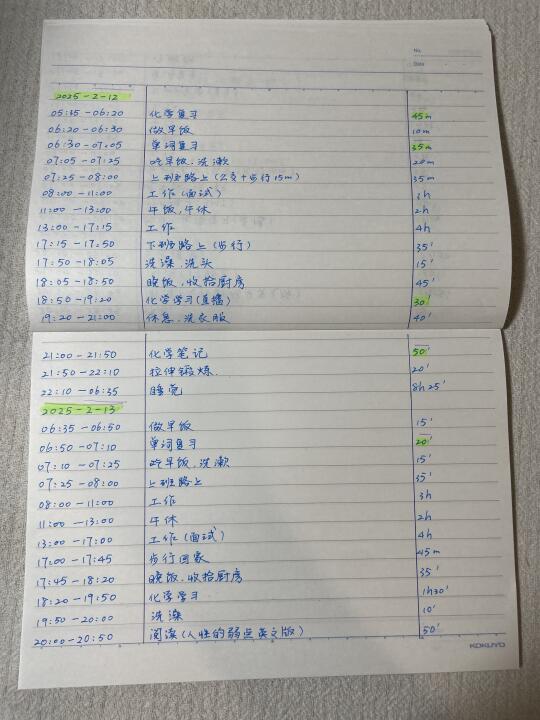 No.
Date
2025-2-12
05:35-06:20 化学复习 45m
06:20-06:30 做早饭 10m
06:30-07:05 单词复习 35m
07:05-07:25 吃早饭.洗漱 20m
07:25-08:00 上班路上(公交+步行15m) 35m
08:00-11:00 工作(面试) 3h
11:00-13:00 午饭,午休 2h
13:00-17:15 工作 4h
17:15-17:50 下班路上(步行) 35'
17:50-18:05 洗澡.洗头 15'
18:05-18:50 晚饭,收拾厨房 45'
18:50-19:20 化学学习(直播) 30'
19:20-21:00 休息.洗衣服 40'
21:00-21:50 化学笔记 50'
21:50-22:10 拉伸锻炼. 20'
22:10-06:35 睡觉 8h 25'
2025-2-13
06:35-06:50 做早饭 15'
06:50-07:10 单词复习 20'
07:10-07:25 吃早饭.洗漱 15'
07:25-08:00 上班路上 35'
08:00-11:00 工作 3h
11:00-13:00 午休 2h
13:00-17:00 工作(面试) 4h
17:00-17:45 步行回家 45m
17:45-18:20 晚饭.收拾厨房 35'
18:20-19:50 化学学习 1h30'
19:50-20:00 洗澡 10'
20:00-20:50 阅读(人性的弱点英文版) 50'
KOKUYO